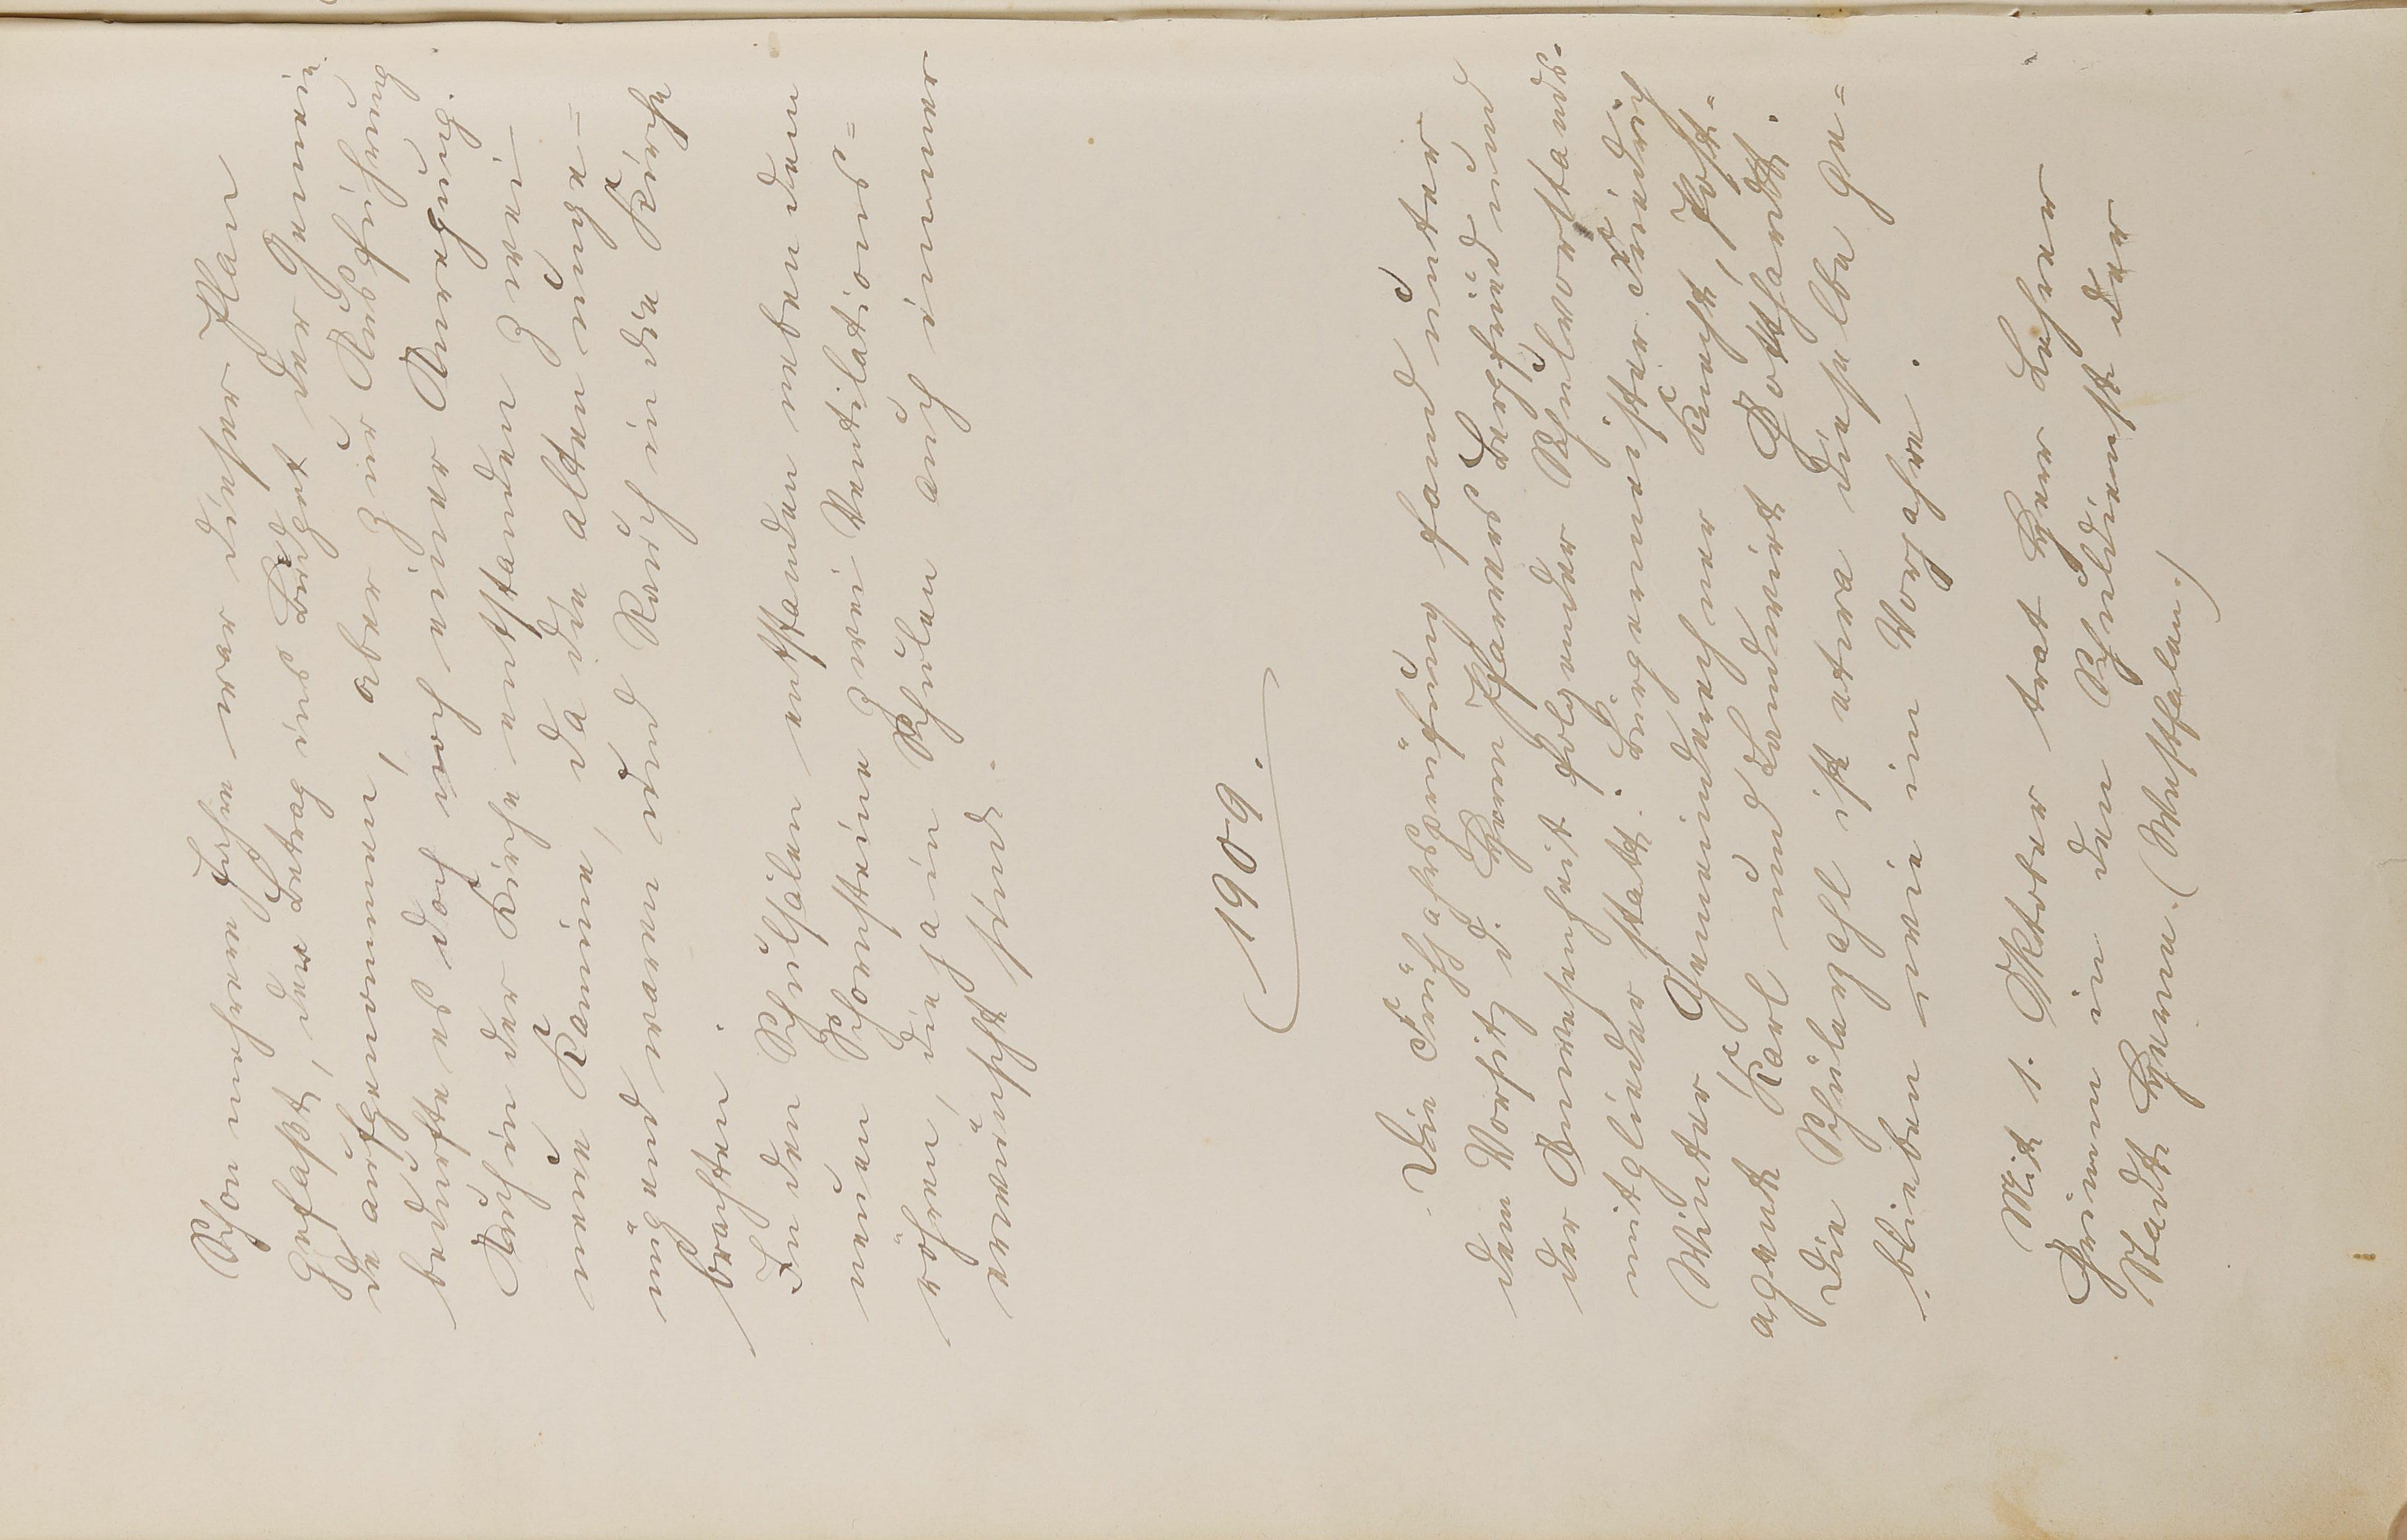 Schon mehrere Jahre war dieser Plan
gefaßt, der Betrag ins Budget der Gemein
de aufgenommen, aber zur Ausführung
bedurfte es doch immer einer Anregung.
Auch in der Küche entstanden zwei
neue Kamine, da die alten unge-
nügend waren und Rauch in die Küche
brachten.
In den Schulsälen entstanden neben den
neuen Schornsteinen zwei Ventilations=
röhren, die ja in Schulen auch immer
erwünscht sind.
1909.
Die Frühjahrsprüfung fand unter
dem Vorsitz d. Herrn Pfarrers Bergfried und
der Anwesenheit folgender Schulvorstands-
mitglieder statt: Bürgermeister Friedrich
Winter Gemeinderechner Knecht, Post=
agent Karl und Landwirt Gotthardt.
Die Schülerzahl ist etwa dieselbe ge=
blieben wie im Vorjahre.
Mit 1. Oktober trat Herr Lehrer
Heimann in den Schuldienst der
Stadt Herne. (Westfalen.)